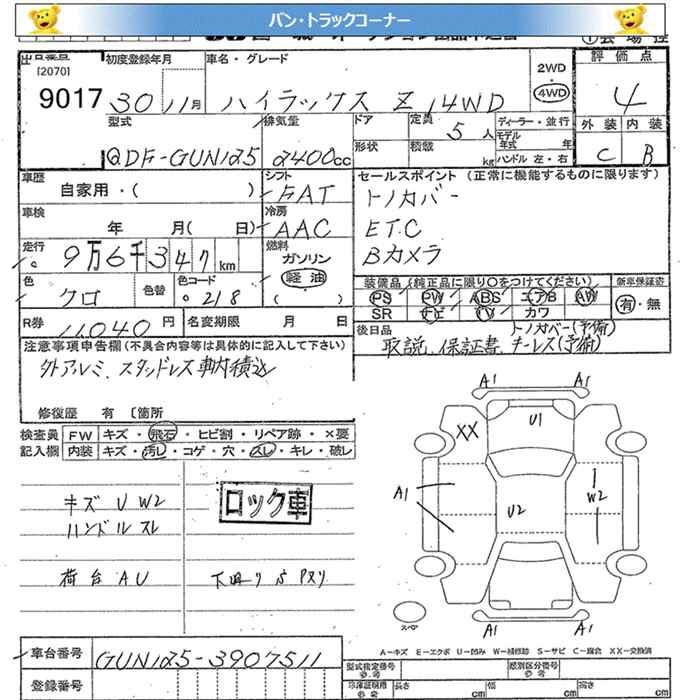 バン・トラックコーナー
出品番号
[2070]
9017
初度登録年月
30 11月
車名・グレード
ハイラックス Z 4WD
2WD
4WD
評価点
4
外装 内装
C B
型式
QDF-GUN125
排気量
2400cc
ドア
形状
定員
5人
積載
kg
ディーラー・並行
モデル年式 年
ハンドル 左・右
車歴
自家用・( )
シフト
FAT
車検
年 月( 日)
冷房
AAC
走行
9万6千347km
燃料
ガソリン
軽油
( )
色
クロ
色替
色コード
218
セールスポイント (正常に機能するものに限ります)
トノカバー
ETC
Bカメラ
装備品(純正品に限り○をつけてください)
PS PW ABS エアB AW
SR ナビ TV カワ
新車保証書
有・無
R券
11040円
名変期限 月 日
後日品
トノカバー(予備)
取説、保証書、キーレス(予備)
注意事項申告欄(不具合内容等は具体的に記入して下さい)
外アルミ、スタッドレス車内積込
修復歴 有 〔箇所
検査員
記入欄
FW キズ・飛石・ヒビ割・リペア跡・×要
内装 キズ・汚レ・コゲ・穴・スレ・キレ・破レ
キズ U W2
ハンドルスレ
荷台 AU
ロック車
下回りS Pヌリ
A1 A1
XX
U1
A1
U2
W2
A1 A1
スペア
A-キズ E-エクボ U-凹み W-補修跡 S-サビ C-腐食 XX-交換済
車台番号
GUN125-3907511
登録番号
型式指定番号
参考
類別区分番号
参考
長さ cm 幅 cm 高さ cm